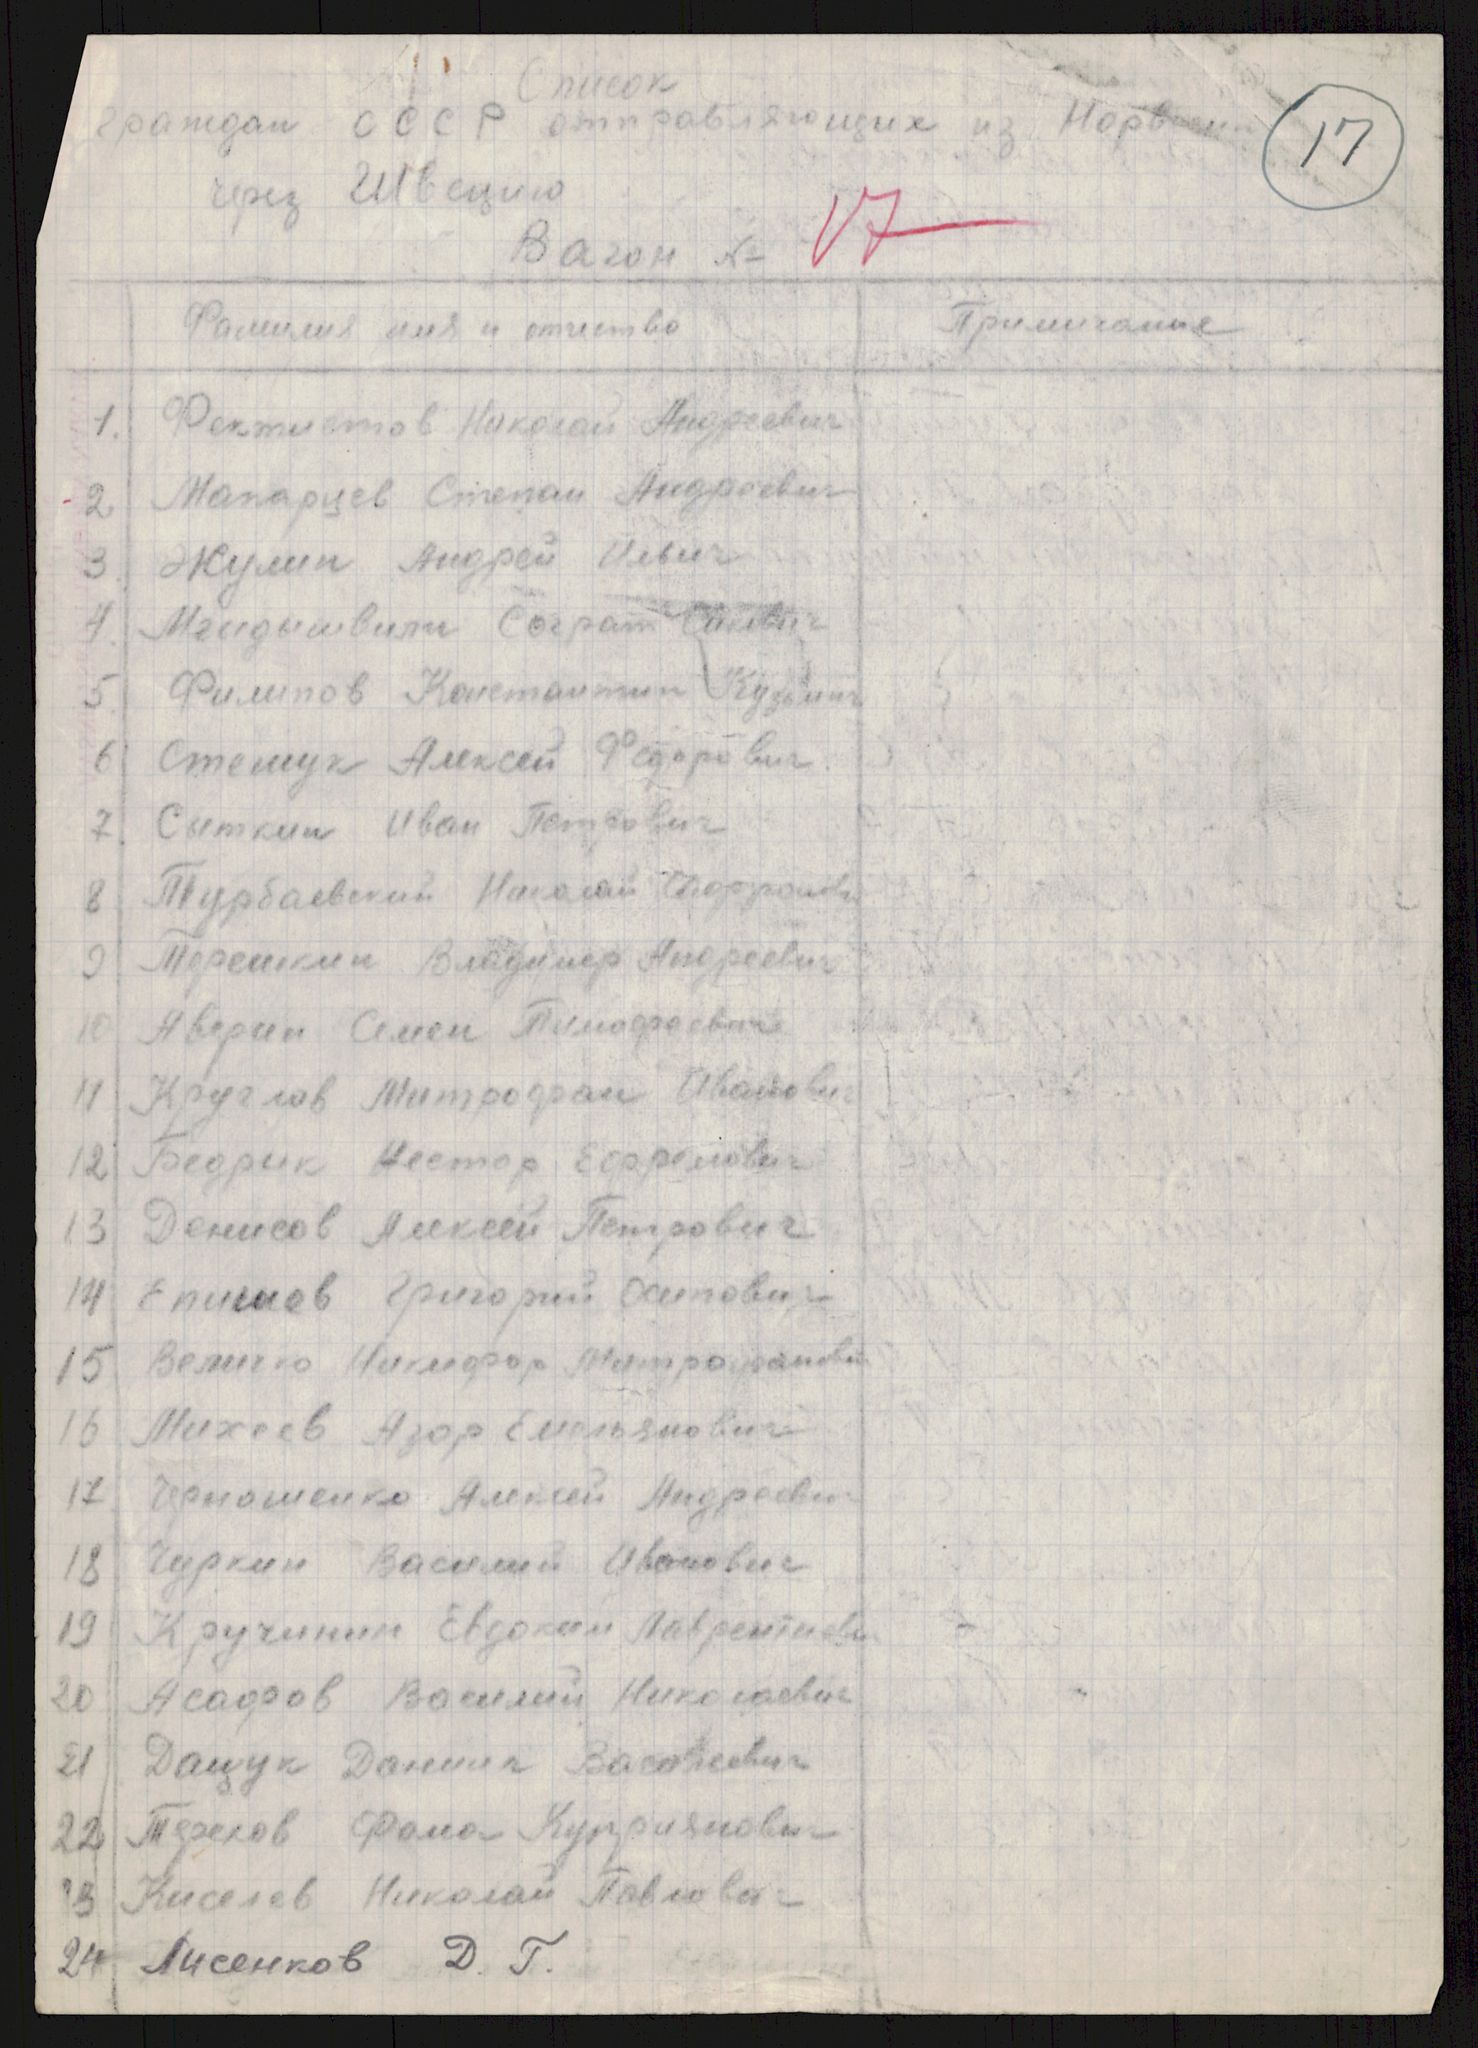 Список
граждан СССР отправляющих из Норвегии
17
чрез Швецию
Вагон № 17
Фамилия имя и отчество Примичания
1. Фектистов Николай Андреевич
2 Мапарцев Степан Андреевич
3 Жулин Андрей Ильич
4. Мгидышвили Сограт
5. Филипов Констонтин Кузьмич
6 Стемук Алексей Федорович
7. Сыткин Иван Петрович
8 Турбаевский Николай
9 Терешкин Владимер Андреевич
10 Аверин Семен Тимофеевич
11 Круглов Митрофан Иванович
12 Бедрик Нестор Ефремович
13 Денисов Алексей Петрович
14 Епишев Григорий Осипович
15 Величко Никифор Митрофанови
16 Михеев Азор Емельянович
17 Черношенко Алексей Андреевич
18 Чуркин Василий Иванович
19 Кручинин Евдоким Лаврентиеви
20 Асафов Василий Николаевич
21 Дащук Даниил
22 Терехов Фома Куприянович
23 Киселев Николай Павлович
24 Лисенков Д. Г.